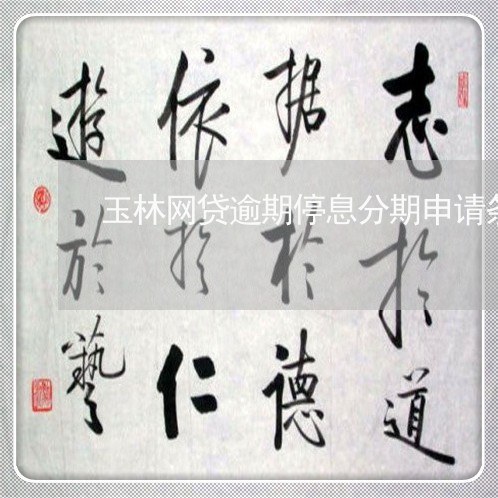 志於道
据於德
依於仁
遊於藝
玉林网贷逾期停息分期申请